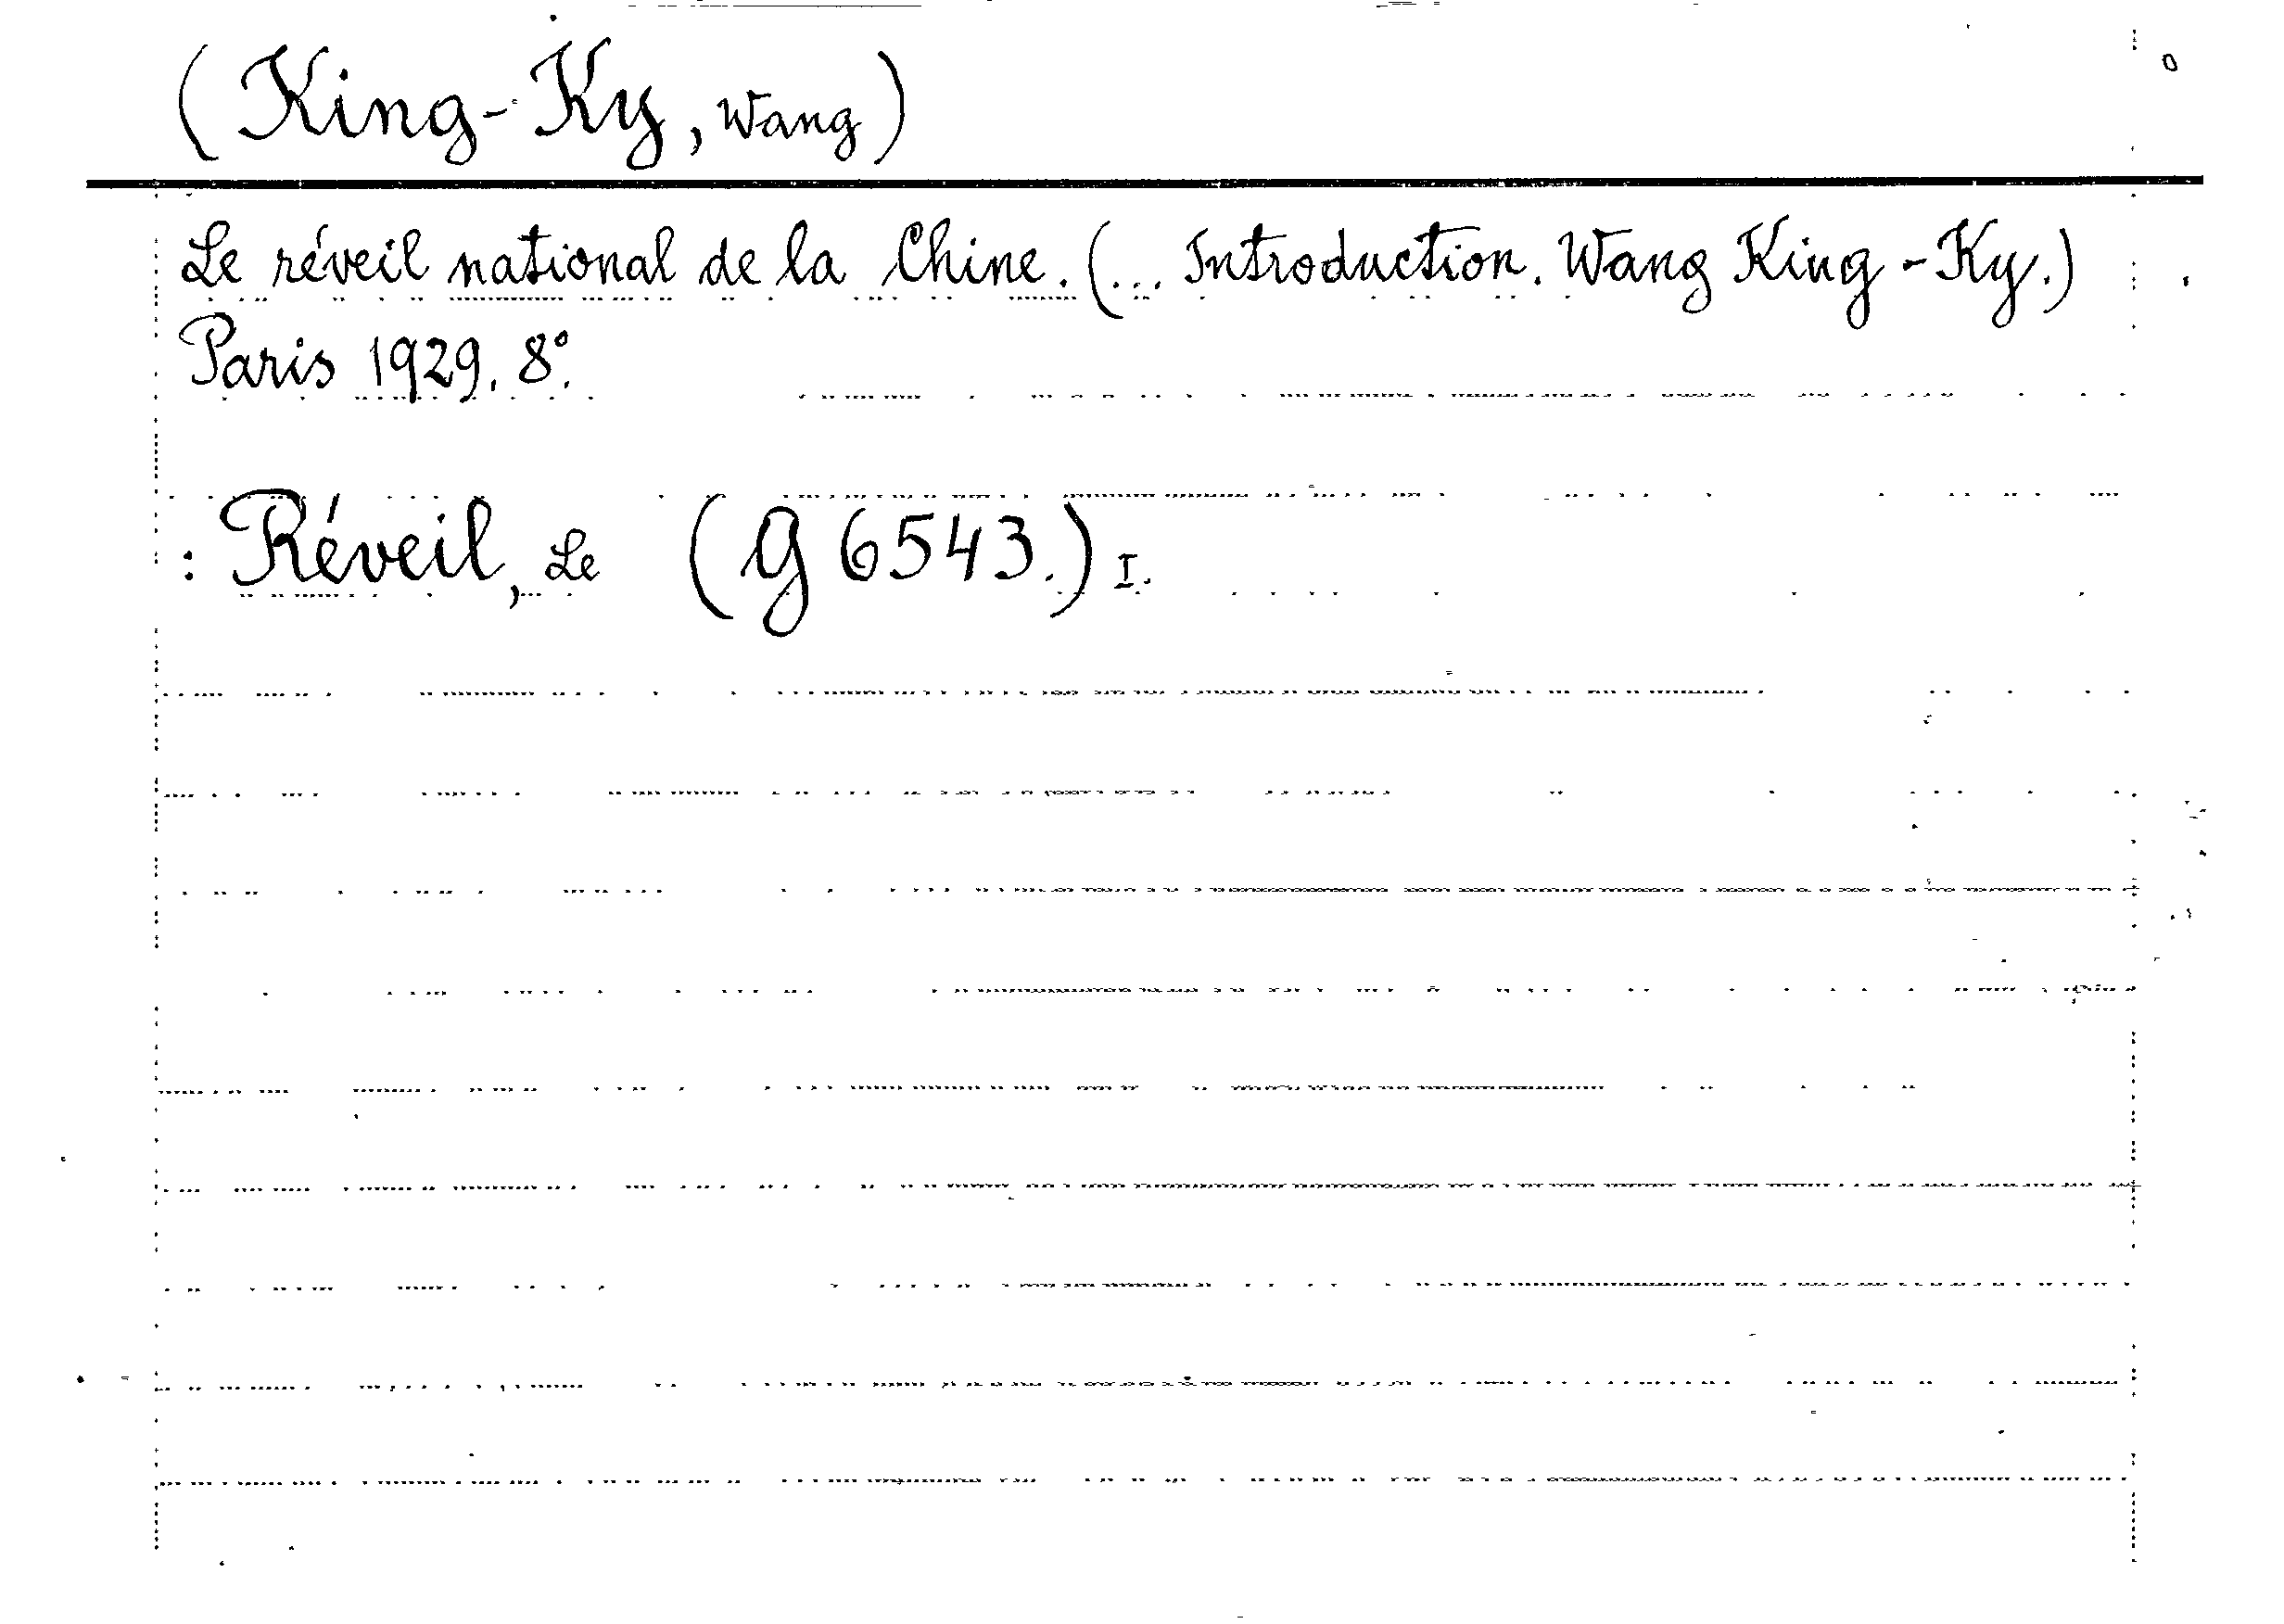 (King-Ky, Wang)
Le réveil national de la Chine. (... Introduction. Wang King-Ky.)
Paris 1929. 8°.
: Réveil, Le (G 6543.) I.